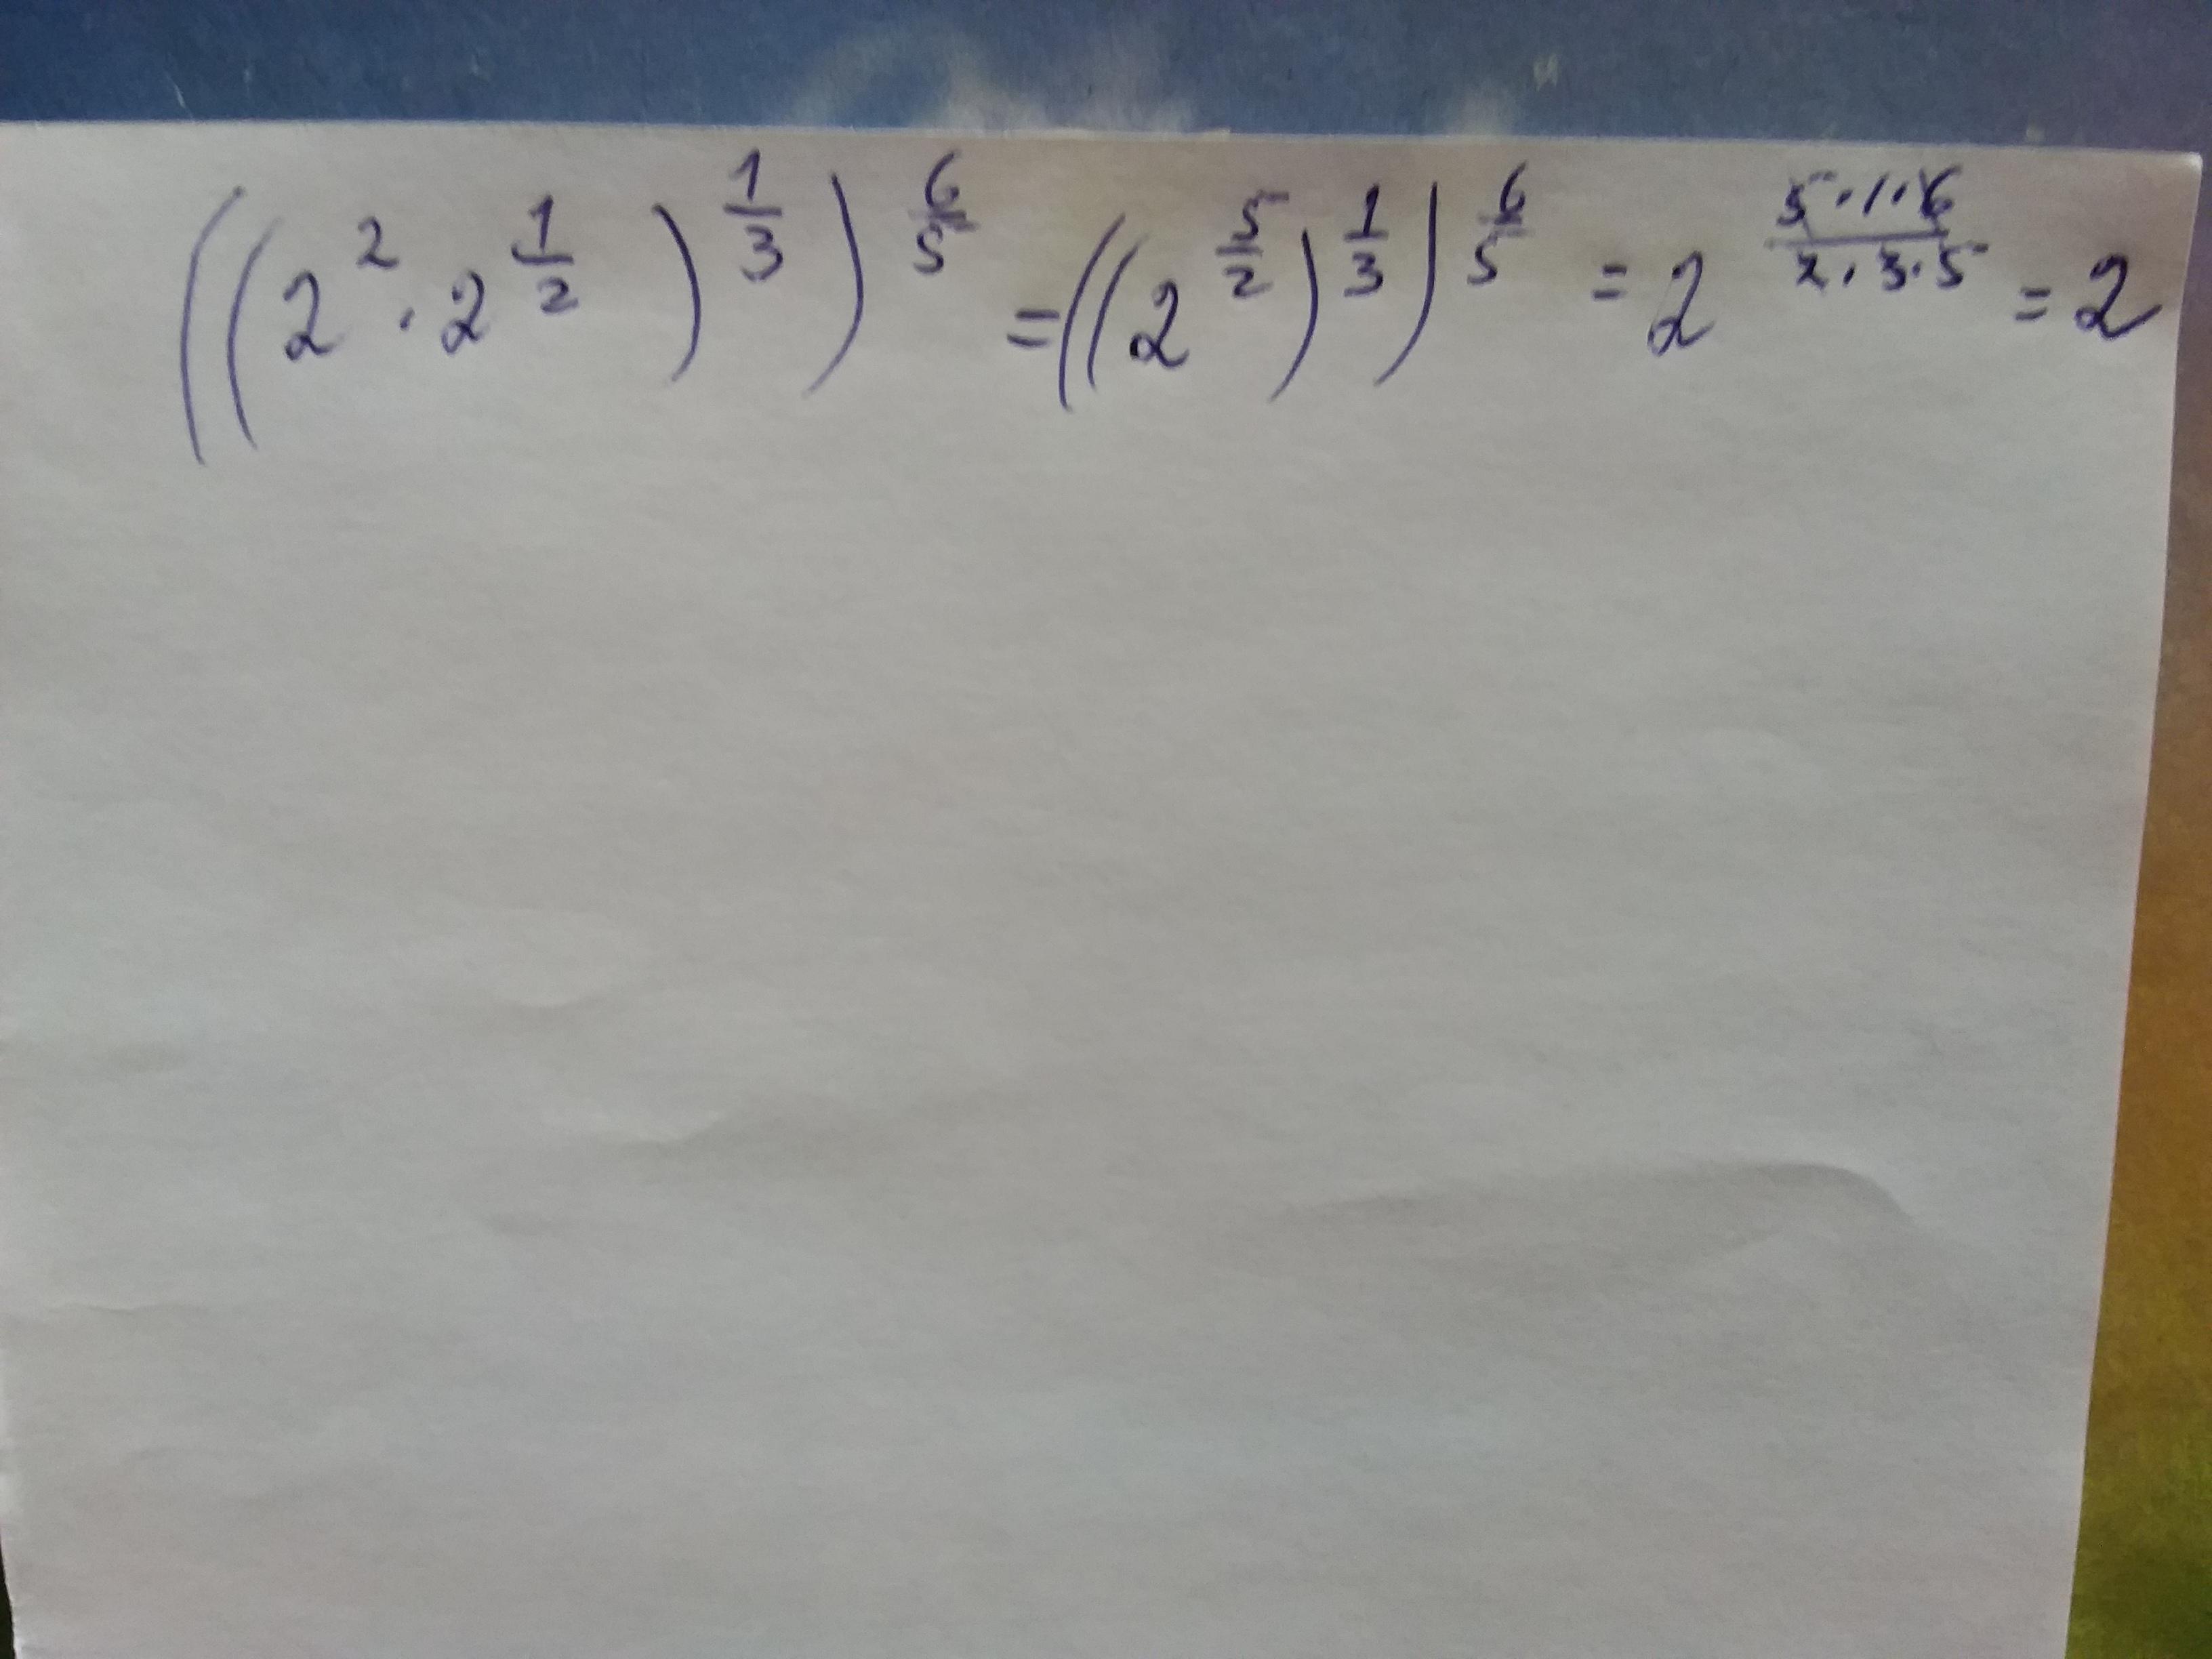 ((2^2 · 2^{1/2})^{1/3})^{6/5} = ((2^{5/2})^{1/3})^{6/5} = 2^{(5·1·6)/(2·3·5)} = 2